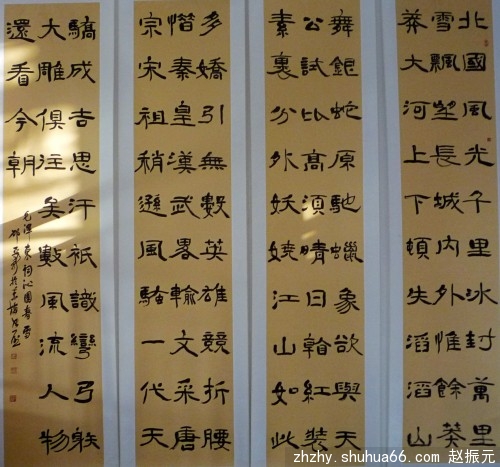 北國風光千里冰封萬里
雪飄望長城內外惟餘莽
莽大河上下頓失滔滔山
舞銀蛇原馳蠟象欲與天
公試比高須晴日看紅裝
素裹分外妖嬈江山如此
多嬌引無數英雄競折腰
惜秦皇漢武畧輸文采唐
宗宋祖稍遜風騷一代天
驕成吉思汗祇識彎弓射
大雕俱往矣數風流人物
還看今朝
毛澤東詞沁園春雪
zhzhy.shuhua66.com 赵振元